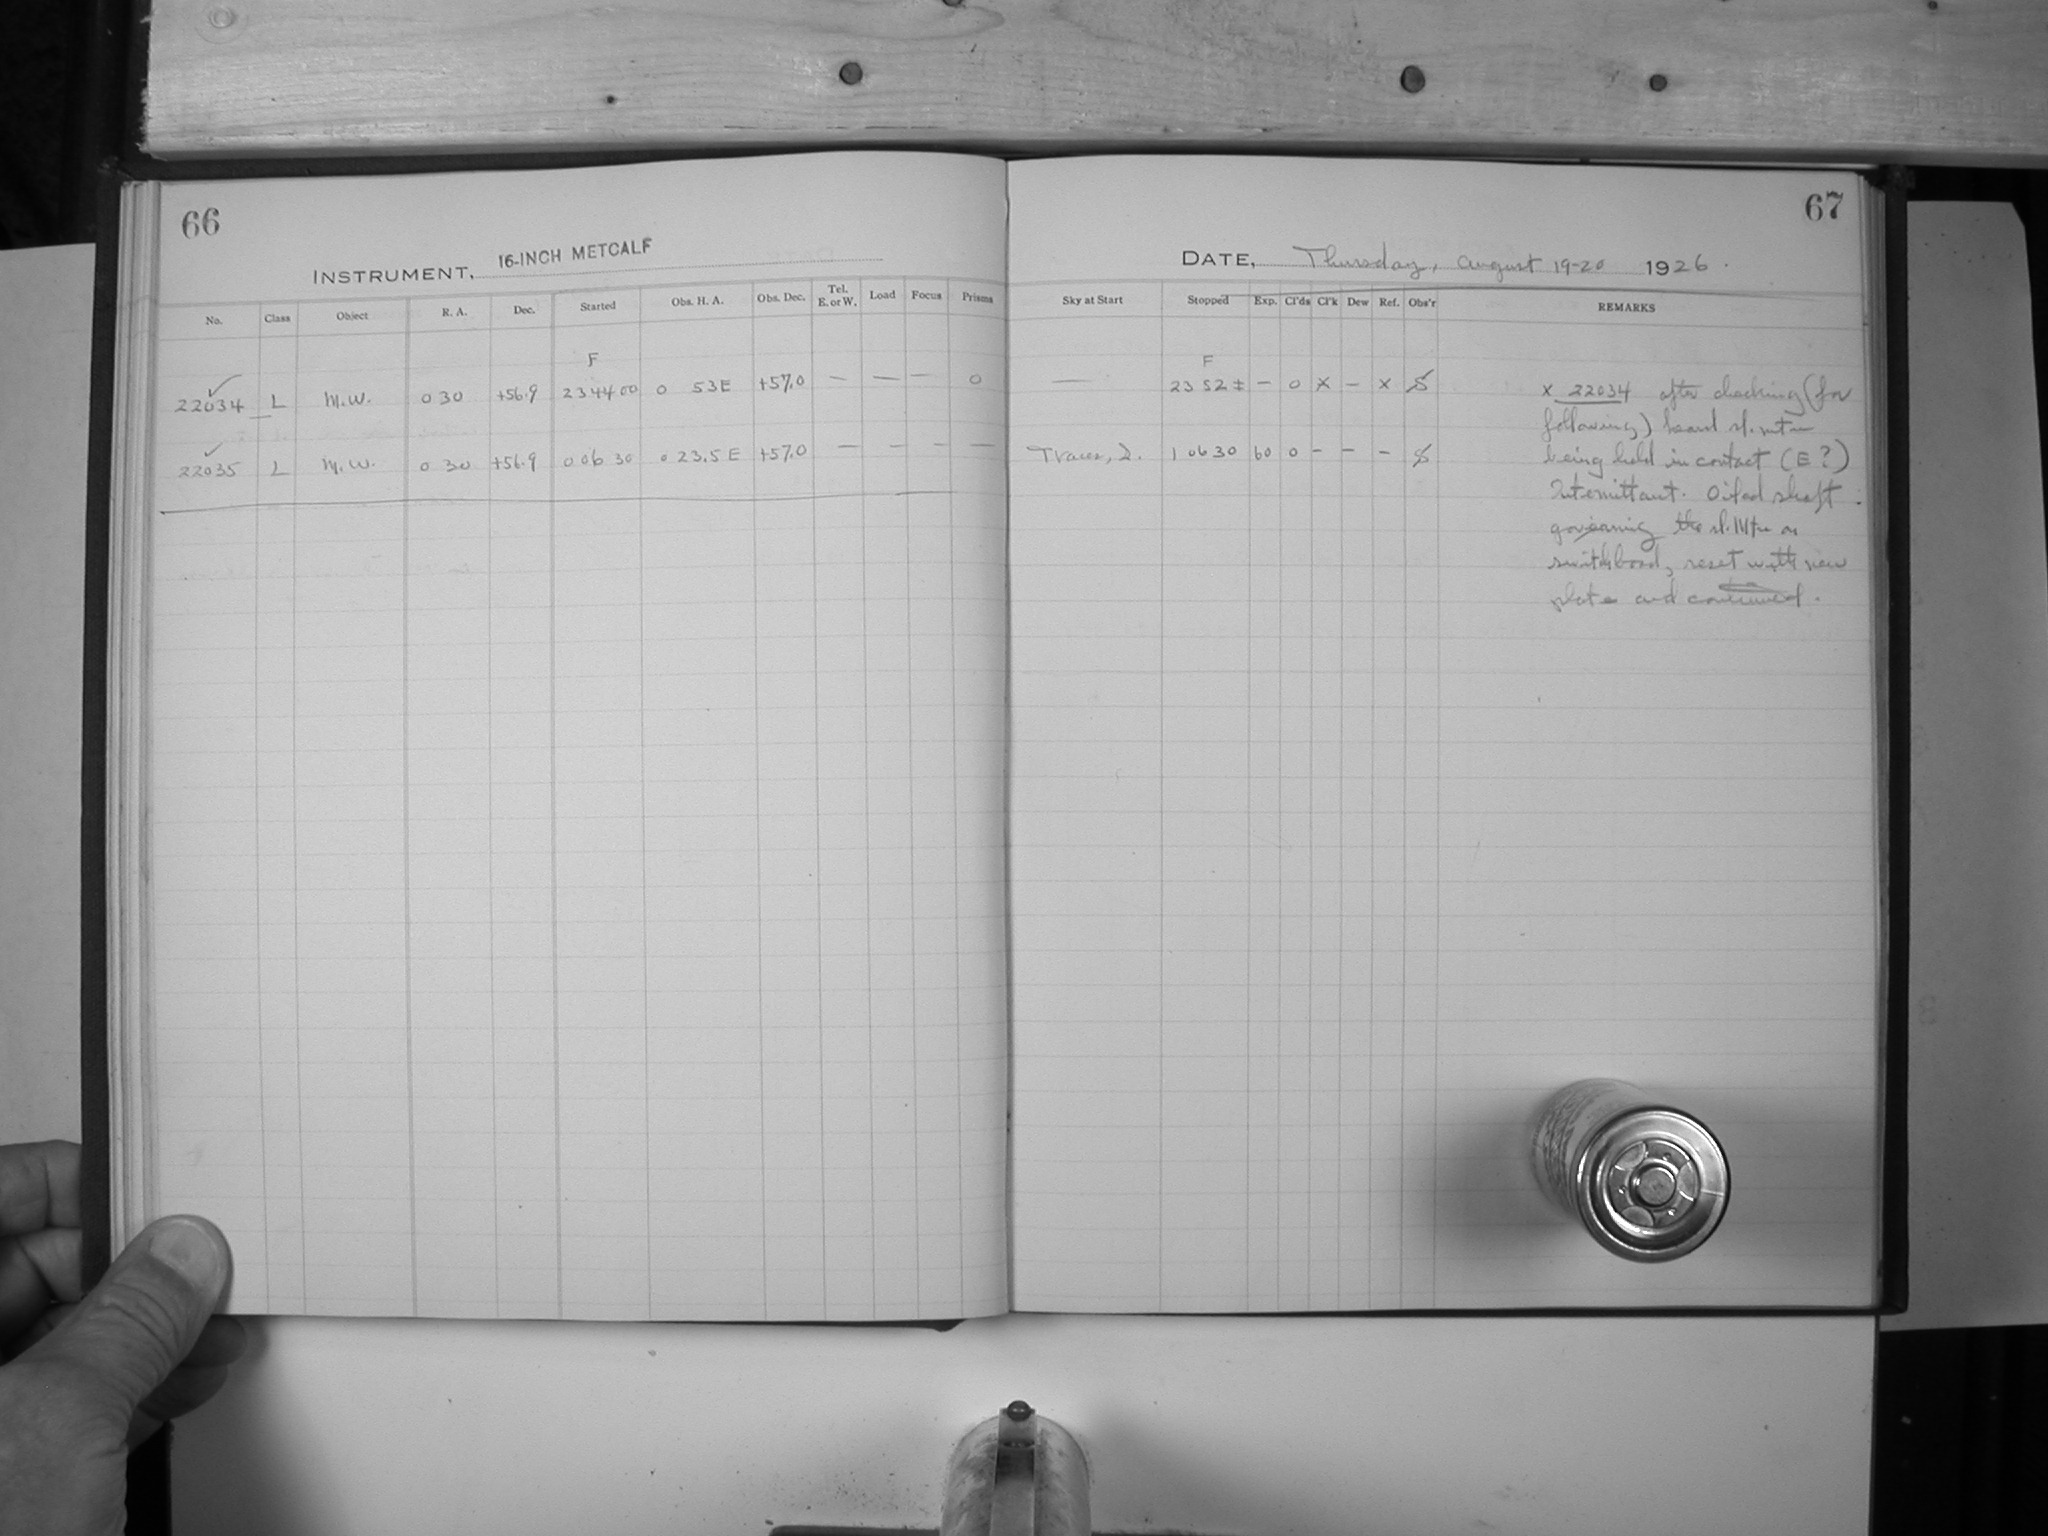 66
INSTRUMENT, 16-INCH METCALF
No. Class Object R. A. Dec. Started Obs. H. A. Obs. Dec. Tel. E. or W. Load Focus Prisms
F
22034 L M.W. 0 30 +56.9 23 44 00 0 53 E +57.0 — — — 0
22035 L M.W. 0 30 +56.9 0 06 30 0 23.5 E +57.0 — — — —
67
DATE, Thursday, August 19-20 1926.
Sky at Start Stopped Exp. Cl'ds Cl'k Dew Ref. Obs'r REMARKS
F
— 23 52 ± — 0 X — X S
Traces, 2. 1 06 30 60 0 - - - S
X 22034 after checking (for
following) heard
being held in contact (E?)
Intermittant. Oiled shaft
governing the on
switchboard, reset with new
plate and